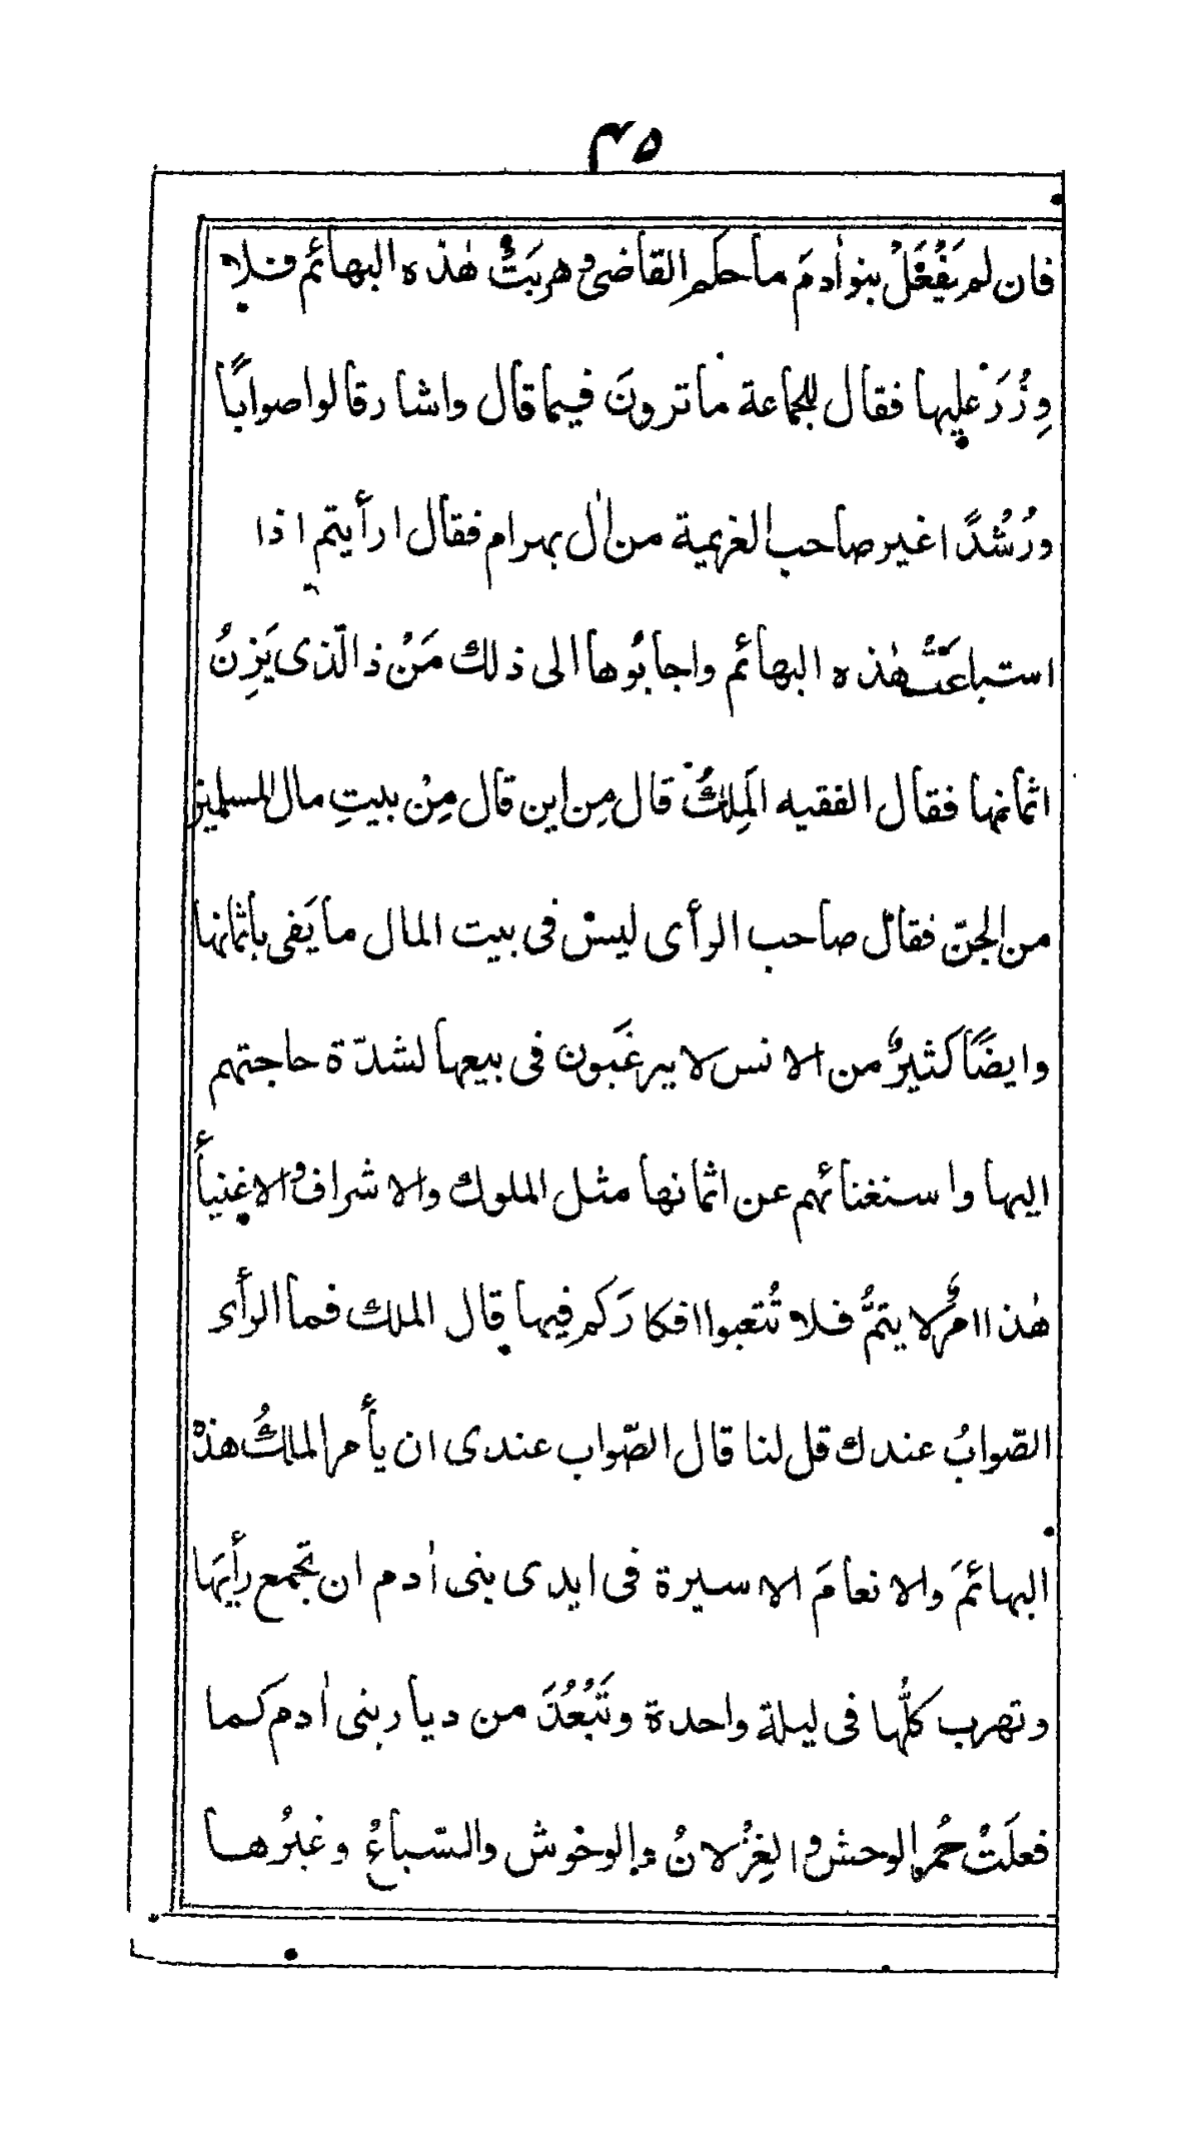 ٤٥
فان لم يَفْعَلْ بنو اٰدمَ ما حكم القاضى وهربَتْ هٰذه البهائم فلا
وِزْرَ عليها فقال للجماعة ما ترونَ فيما قال واشار قالوا صوابًا
ورُشْدًا غير صاحب الغريمة من اٰل بهرام فقال ارأيتم اذا
استباعَتْ هٰذه البهائم واجابُوها الى ذلك مَنْ ذا الّذى يَزِنُ
اثمانها فقال الفقيه المَلِكُ قال مِن اين قال مِنْ بيتِ مال المسلمين
من الجنّ فقال صاحب الرأى ليسْ فى بيت المال ما يَفى باثمانها
وايضًا كثيرٌ من الانس لا يرغَبون فى بيعها لشدّة حاجتهم
اليها واستغنائهم عن اثمانها مثل الملوك والاشراف والاغنيأ
هٰذا امرٌ لا يتمُّ فلا تُتعبوا افكارَكم فيها قال الملك فما الرأى
الصّوابُ عندك قل لنا قال الصّواب عندى ان يأمر الملكُ هذهْ
البهائمَ والانعامَ الاسيرة فى ايدى بنى اٰدم ان تجمع رأيَها
وتهرب كلُّها فى ليلة واحدة وتَبْعُدَ من ديار بنى اٰدم كما
فعلَتْ حُمر الوحش والغِزْلانُ والوحوش والسّباعُ وغيرُها